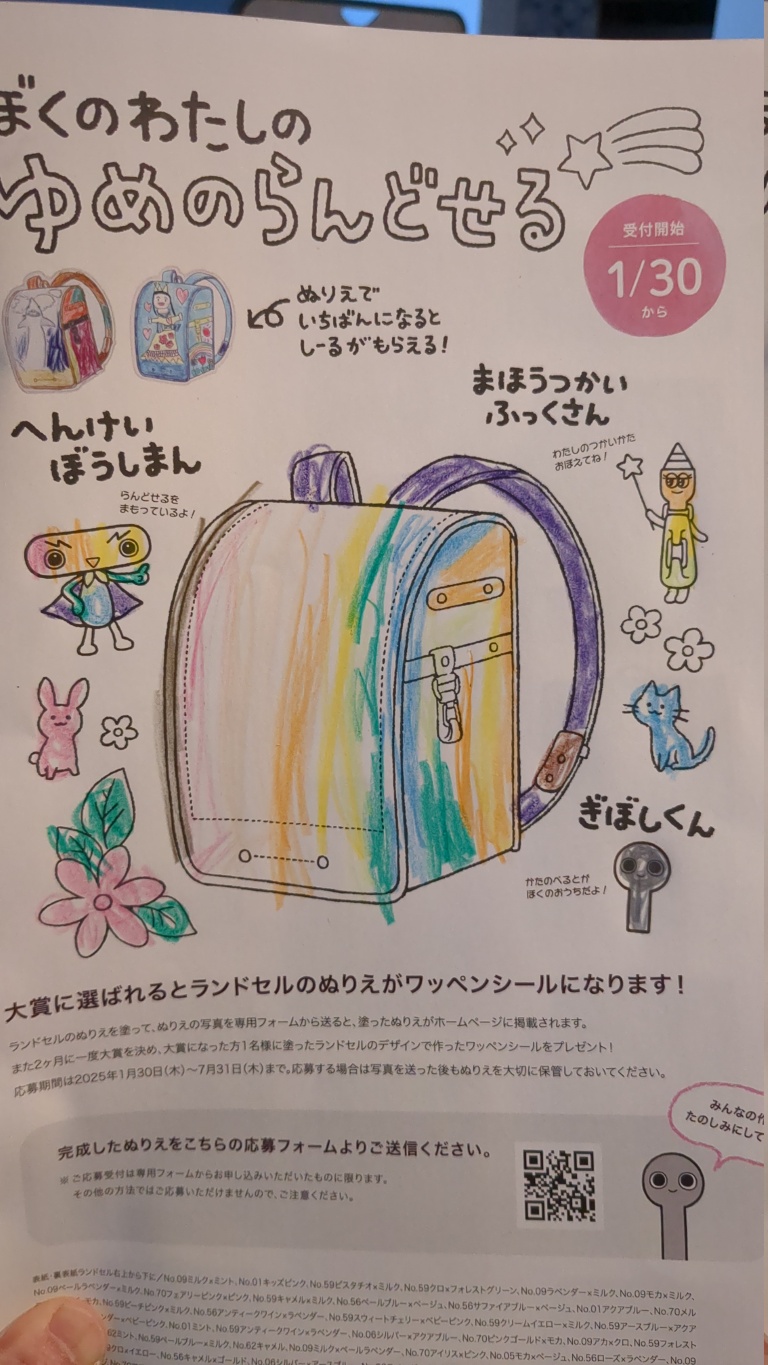 ぼくのわたしの
ゆめのらんどせる
受付開始
1/30
から
ぬりえで
いちばんになると
しーるがもらえる!
まほうつかい
ふっくさん
わたしのつかいかた
おぼえてね!
へんけい
ぼうしまん
らんどせるを
まもっているよ!
ぎぼしくん
かたのべるとが
ぼくのおうちだよ!
大賞に選ばれるとランドセルのぬりえがワッペンシールになります!
ランドセルのぬりえを塗って、ぬりえの写真を専用フォームから送ると、塗ったぬりえがホームページに掲載されます。
また2ヶ月に一度大賞を決め、大賞になった方1名様に塗ったランドセルのデザインで作ったワッペンシールをプレゼント!
応募期間は2025年1月30日(木)〜7月31日(木)まで。応募する場合は写真を送った後もぬりえを大切に保管しておいてください。
みんなの作
たのしみにして
完成したぬりえをこちらの応募フォームよりご送信ください。
※ご応募受付は専用フォームからお申し込みいただいたものに限ります。
その他の方法ではご応募いただけませんので、ご注意ください。
表紙・裏表紙ランドセル右上から下に/No.09ミルク×ミント、No.01キッズピンク、No.59ピスタチオ×ミルク、No.59クロ×フォレストグリーン、No.09ラベンダー×ミルク、No.09モカ×ミルク、
No.09ペールラベンダー×ミルク、No.70フェアリーピンク×ピンク、No.59キャメル×ミルク、No.56ペールブルー×ベージュ、No.56サファイアブルー×ベージュ、No.01アクアブルー、No.70メル
モカ、No.59ピーチピンク×ミルク、No.56アンティークワイン×ラベンダー、No.59スウィートチェリー×ベビーピンク、No.59クリームイエロー×ミルク、No.59アースブルー×アクア
ンダー×ベビーピンク、No.01ミント、No.59アンティークワイン×ラベンダー、No.06シルバー×アクアブルー、No.70ピンクゴールド×モカ、No.09アカ×クロ、No.59フォレスト
62ミント、No.59ペールブルー×ミルク、No.62キャメル、No.09ミルク×ペールラベンダー、No.70アイリス×ピンク、No.05モカ×ベージュ、No.56ローズ×ラベンダー、No.09
クロ×イエロー、No.56キャメル×ゴールド、No.06シルバー×アースブルー